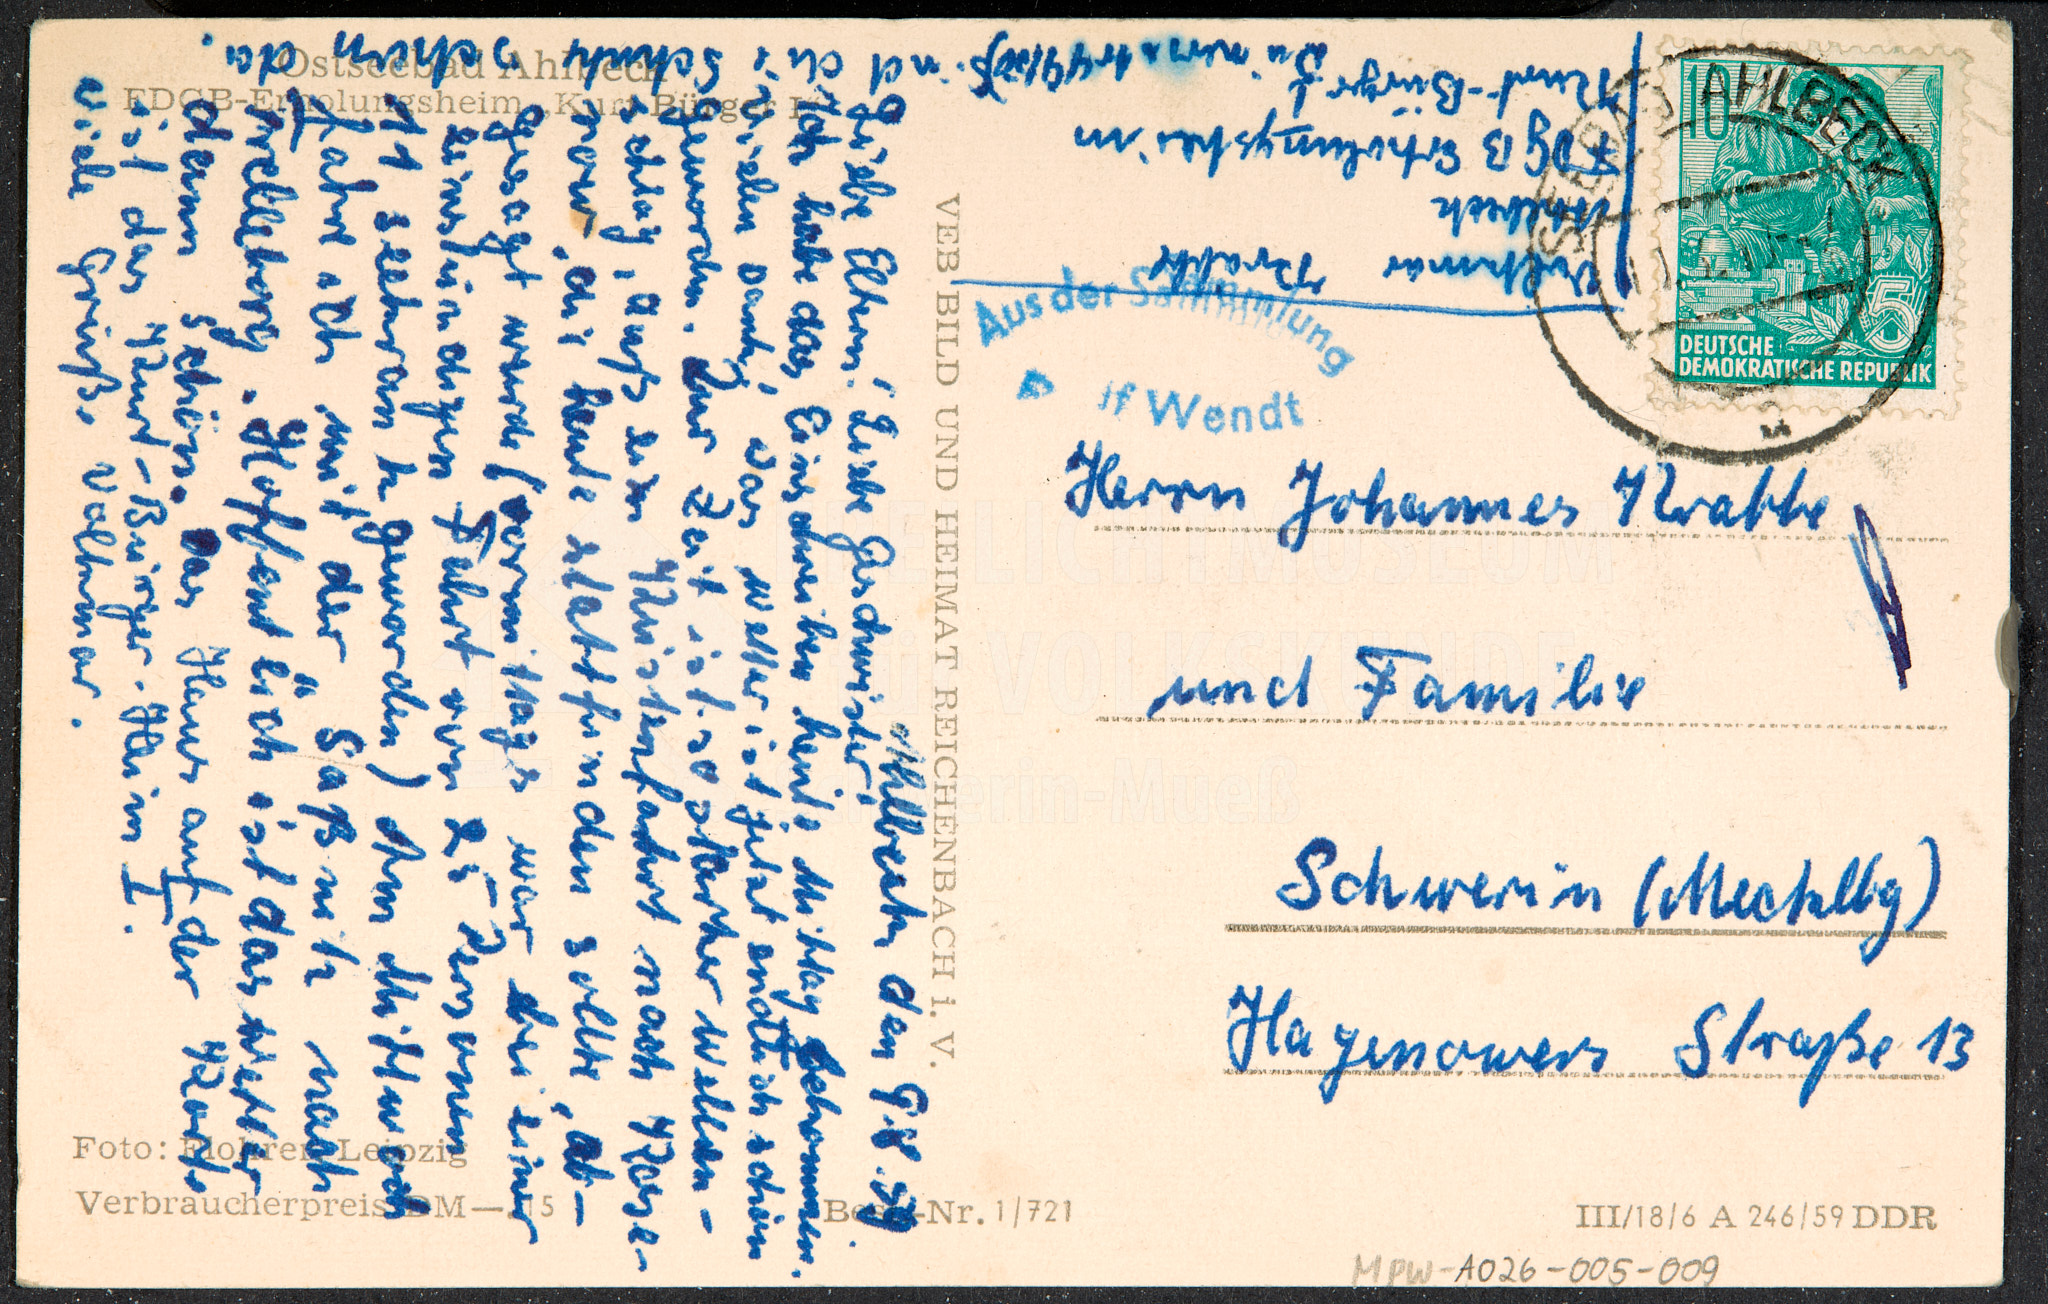 Ostseebad Ahlbeck
FDGB-Erholungsheim „Kurt Bürger I“
Ahlbeck den 9.8.59
Liebe Eltern! Liebe Geschwister!
Ich habe das Einschreiben heute Mittag bekommen.
vielen Dank, das Wetter ist jetzt endlich schön
geworden. Zur Zeit ist so starker Wellen-
schlag, daß die Küstenfahrt nach Kose-
row, die heute stattfinden sollte, ab-
gesagt wurde (vormittags war bei einer
einstündigen Fahrt von 25 Personen
11 seekrank geworden) Am Mittwoch
fahre ich mit der Saßnitz nach
Trelleborg. Hoffentlich ist das Wetter
dann schön. Das Haus auf der Karte
ist das Kurt-Bürger-Heim I.
viele Grüße Volkmar.
und die Schuhe schon da.
VEB BILD UND HEIMAT REICHENBACH i. V.
Volkmar Krabbe
Ahlbeck
FDGB Erholungsheim
Kurt-Bürger I
Zimmer
SEEBAD AHLBECK
10
5
DEUTSCHE
DEMOKRATISCHE REPUBLIK
Aus der Sammlung
Wendt
Herrn Johannes Krabbe
und Familie
Schwerin (Mecklbg)
Hagenower Straße 13
FREILICHTMUSEUM
für VOLKSKUNDE
Schwerin-Mueß
Foto: Flohrer, Leipzig
Verbraucherpreis DM —.15
Best.-Nr. 1/721
III/18/6 A 246/59 DDR
MPW-A026-005-009